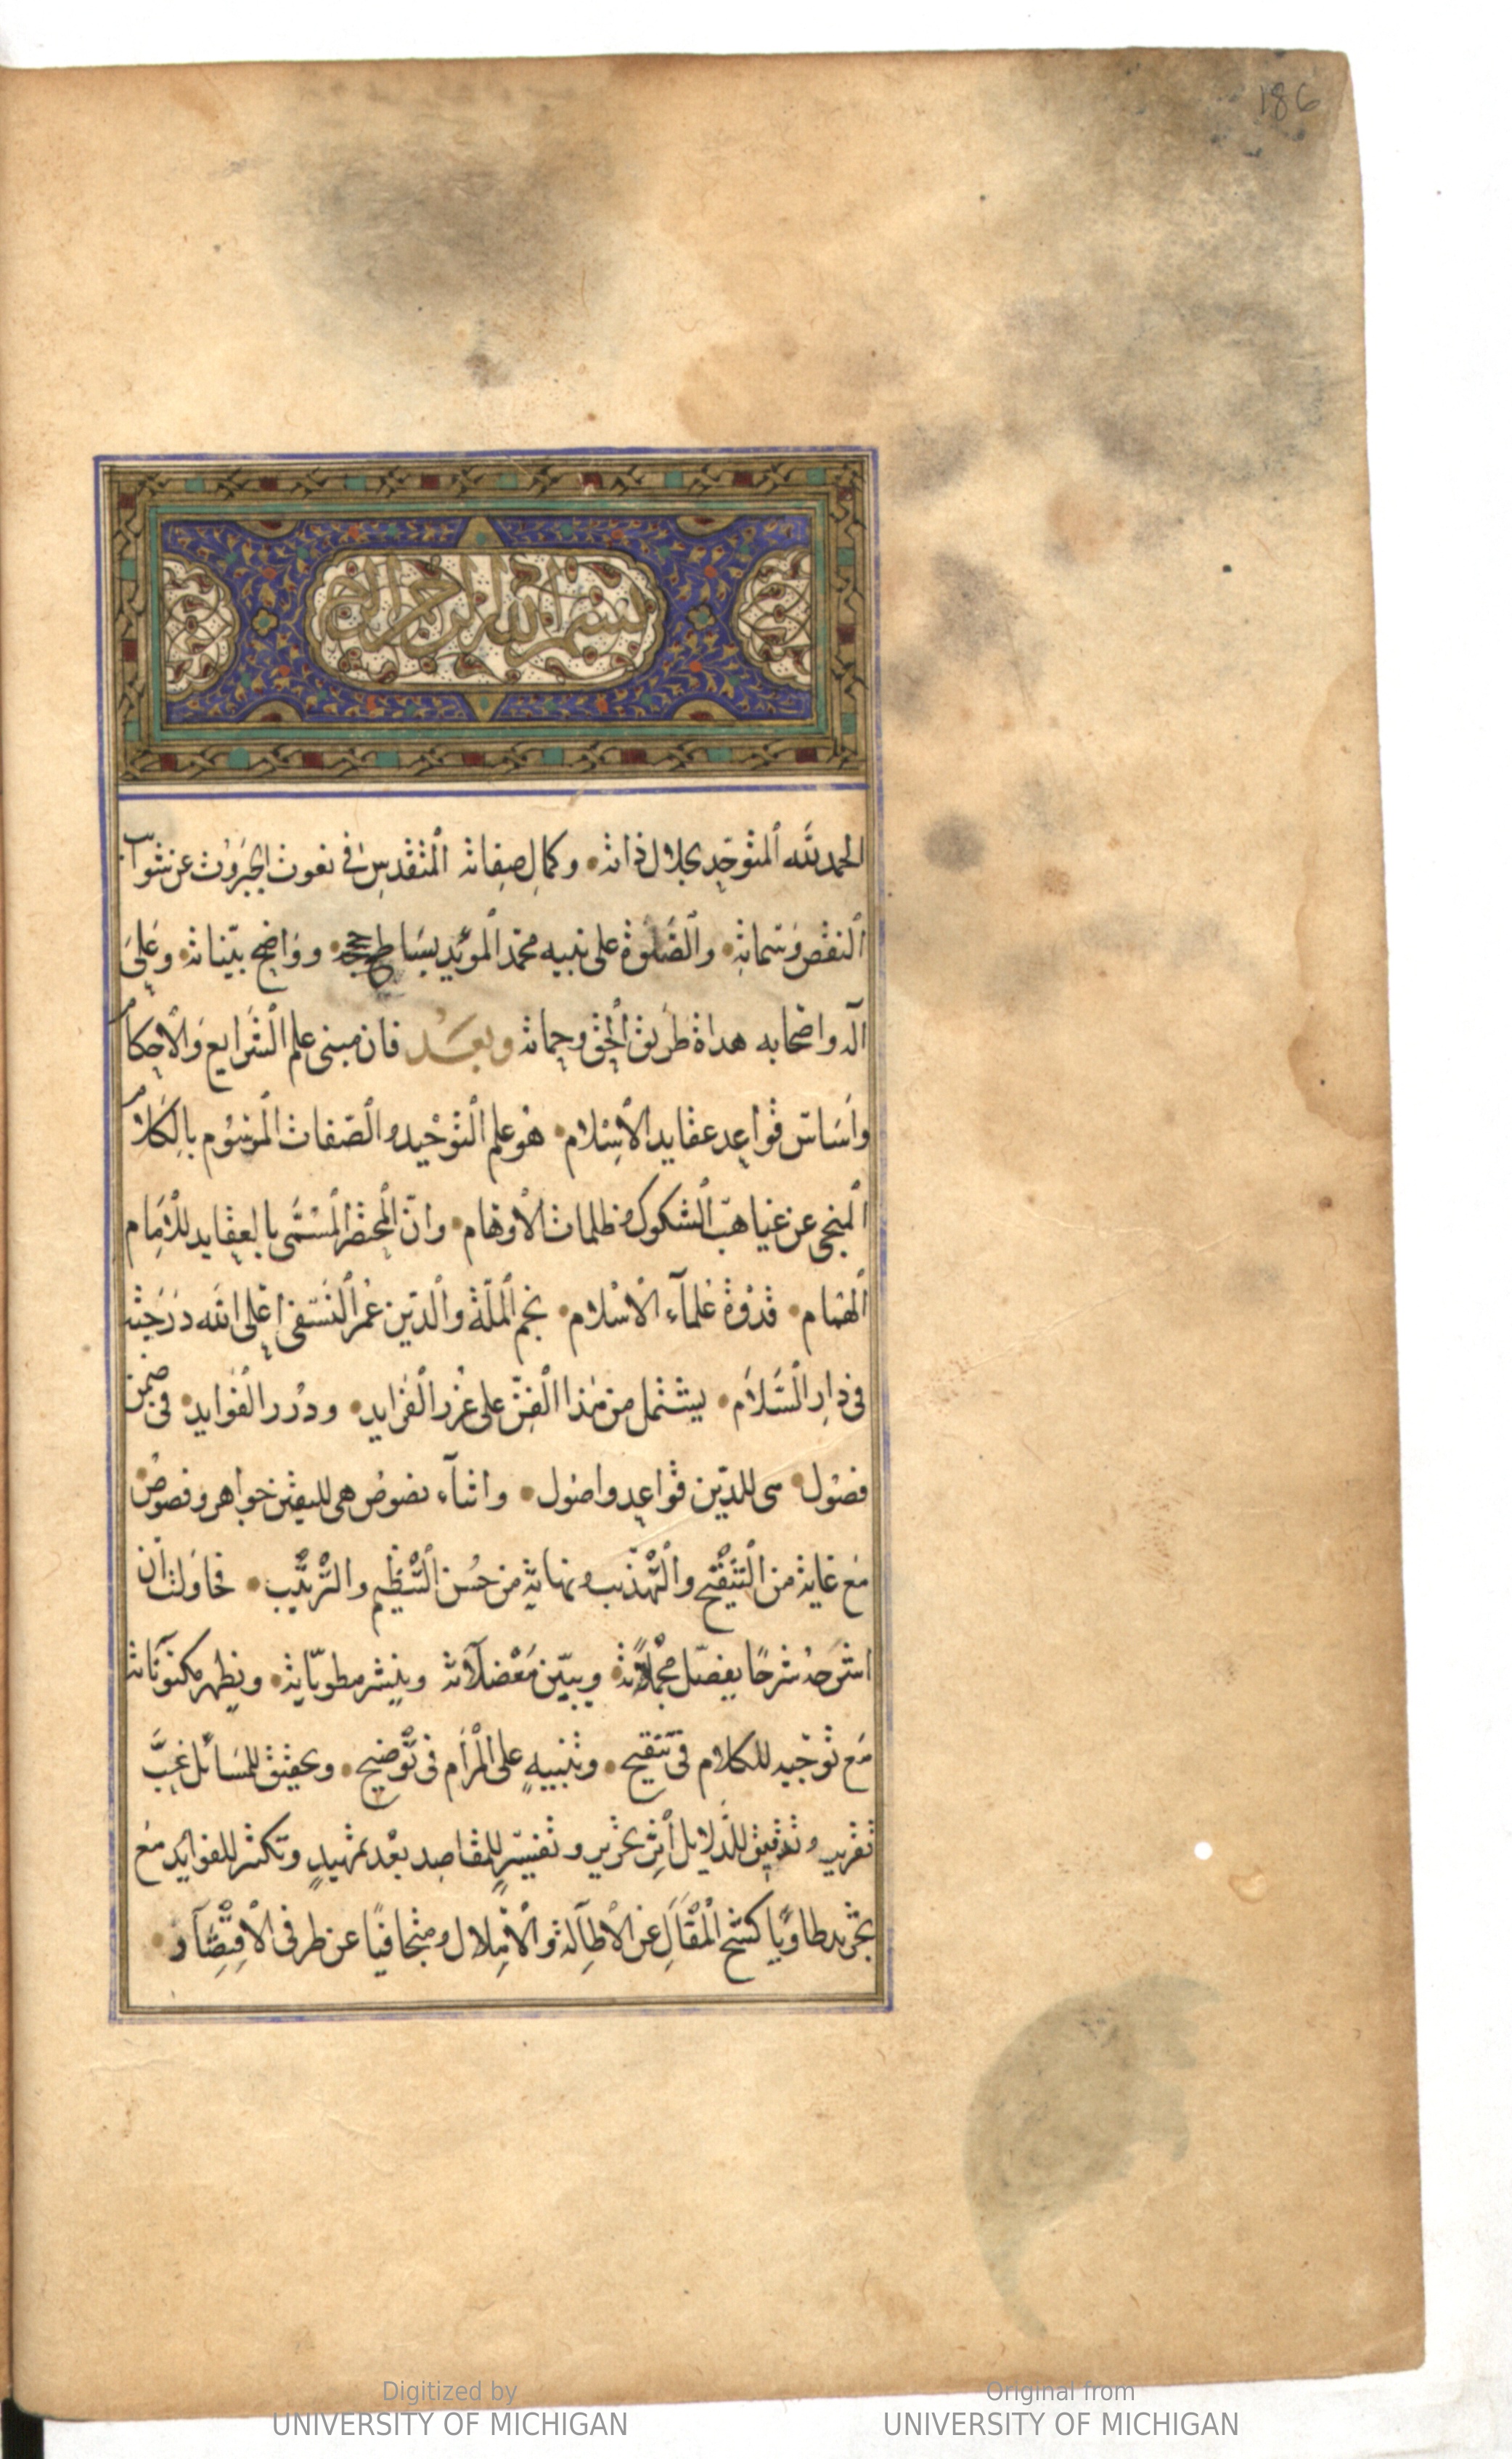 186
بسم الله الرحمن الرحيم
الحمد لله المتوحد بجلال ذاته وكمال صفاته المتقدس في نعوت الجبروت عن شوائب
النقص وسماته والصلوة على نبيه محمد المؤيد بساطع حججه وواضح بيناته وعلى
آله واصحابه هداة طريق الحق وحماته وبعد فان مبنى علم الشرايع والاحكام
واساس قواعد عقايد الاسلام هو علم التوحيد والصفات الموسوم بالكلام
المنجى عن غياهب الشكوك وظلمات الاوهام وان المختصر المسمى بالعقايد للامام
الهمام قدوة علماء الاسلام نجم الملة والدين عمر النسفى اعلى الله درجته
فى دار السلام يشتمل من هذا الفن على غرر الفرايد ودرر الفوايد فى ضمن
فصول هى للدين قواعد واصول واثناء نصوص هى لليقين جواهر وفصوص
مع غاية من التنقيح والتهذيب ونهاية من حسن التنظيم والترتيب فحاولت ان
اشرحه شرحا يفصل مجملاته ويبين معضلاته وينشر مطوياته ويظهر مكنوناته
مع توجيه للكلام فى تنقيح وتنبيه على المرام فى توضيح وتحقيق للمسائل غب
تقرير وتدقيق للدلايل اثر تحرير وتفسير للمقاصد بعد تمهيد وتكثير للفوايد مع
تجريد طاويا كشح المقال عن الاطالة والاملال ومتجافيا عن طرفى الاقتصاد
Digitized by
UNIVERSITY OF MICHIGAN
Original from
UNIVERSITY OF MICHIGAN